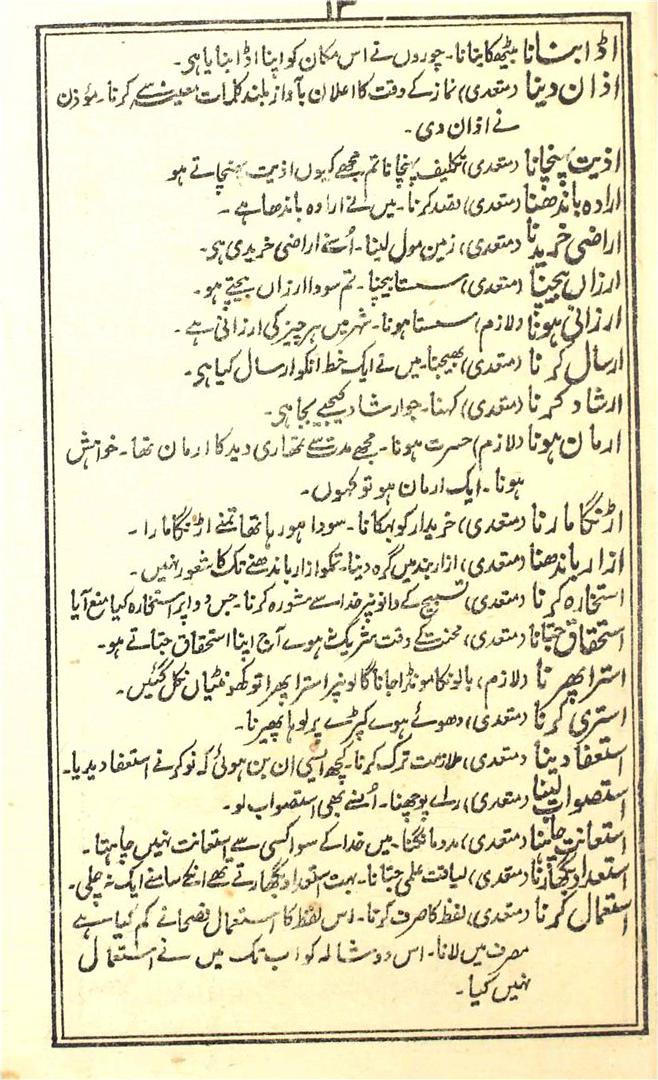 ۱۳
اڈا بنانا بیٹھکا بنانا۔ چوروں نے اس مکان کو اپنا اڈا بنایا ہی۔
اذان دینا (متعدی) نماز کے وقت کا اعلان بآواز بلند کلمات معینہ سے کرنا۔ مؤذن
نے اذان دی۔
اذیت پہنچانا (متعدی) تکلیف پہنچانا تم مجھے کیوں اذیت پہنچاتے ہو
ارادہ باندھنا (متعدی) قصد کرنا۔ میں نے ارادہ باندھا ہے۔
اراضی خریدنا (متعدی) زمین مول لینا۔ اُسنے اراضی خریدی ہی۔
ارزاں بیچنا (متعدی) سستا بیچنا۔ تم سودا ارزاں بیچتے ہو۔
ارزانی ہونا (لازم) سستا ہونا۔ شہر میں ہر چیز کی ارزانی ہے۔
ارسال کرنا (متعدی) بھیجنا۔ میں نے ایک خط انکو ارسال کیا ہی۔
ارشاد کرنا (متعدی) کہنا۔ جو ارشاد کیجیے بجا ہی۔
ارمان ہونا (لازم) حسرت ہونا۔ مجھے مدت سے تمھاری دید کا ارمان تھا۔ خواہش
ہونا۔ ایک ارمان ہو تو کہوں۔
اڑنگا مارنا (متعدی) خریدار کو بہکانا۔ سودا ہو رہا تھا تمنے اڑنگا مارا۔
ازار باندھنا (متعدی) ازاربند میں گرہ دینا۔ تمکو ازار باندھنے تک کا شعور نہیں۔
استخارہ کرنا (متعدی) تسبیح کے دانونپر خدا سے مشورہ کرنا۔ جس دوا پر استخارہ کیا منع آیا
استحقاق جتانا (متعدی) محنت کے وقت نہ شریک ہوے آج اپنا استحقاق جتاتے ہو۔
استرا پھرنا (لازم) بالونکا مونڈا جانا گالونپر استرا پھرا تو کھونٹیاں نکل گئیں۔
استری کرنا (متعدی) دھوئے ہوے کپڑے پر لوہا پھیرنا۔
استعفا دینا (متعدی) ملازمت ترک کرنا۔ کچھ ایسی ان بن ہوئی کہ نوکر نے استعفا دیدیا۔
استصواب لینا (متعدی) راے پوچھنا۔ اُنسے بھی استصواب لو۔
استعانت چاہنا (متعدی) مدد مانگنا۔ میں خدا کے سوا کسی سے استعانت نہیں چاہتا۔
استعداد بگھارنا (متعدی) لیاقت علمی جتانا۔ بہت استعداد بگھارتے تھے انکے سامنے ایک نہ چلی۔
استعمال کرنا (متعدی) لفظ کا صرف کرنا۔ اس لفظ کا استعمال فصحا نے کم کیا ہے
مصرف میں لانا۔ اس دوشالہ کو اب تک میں نے استعمال
نہیں کیا۔